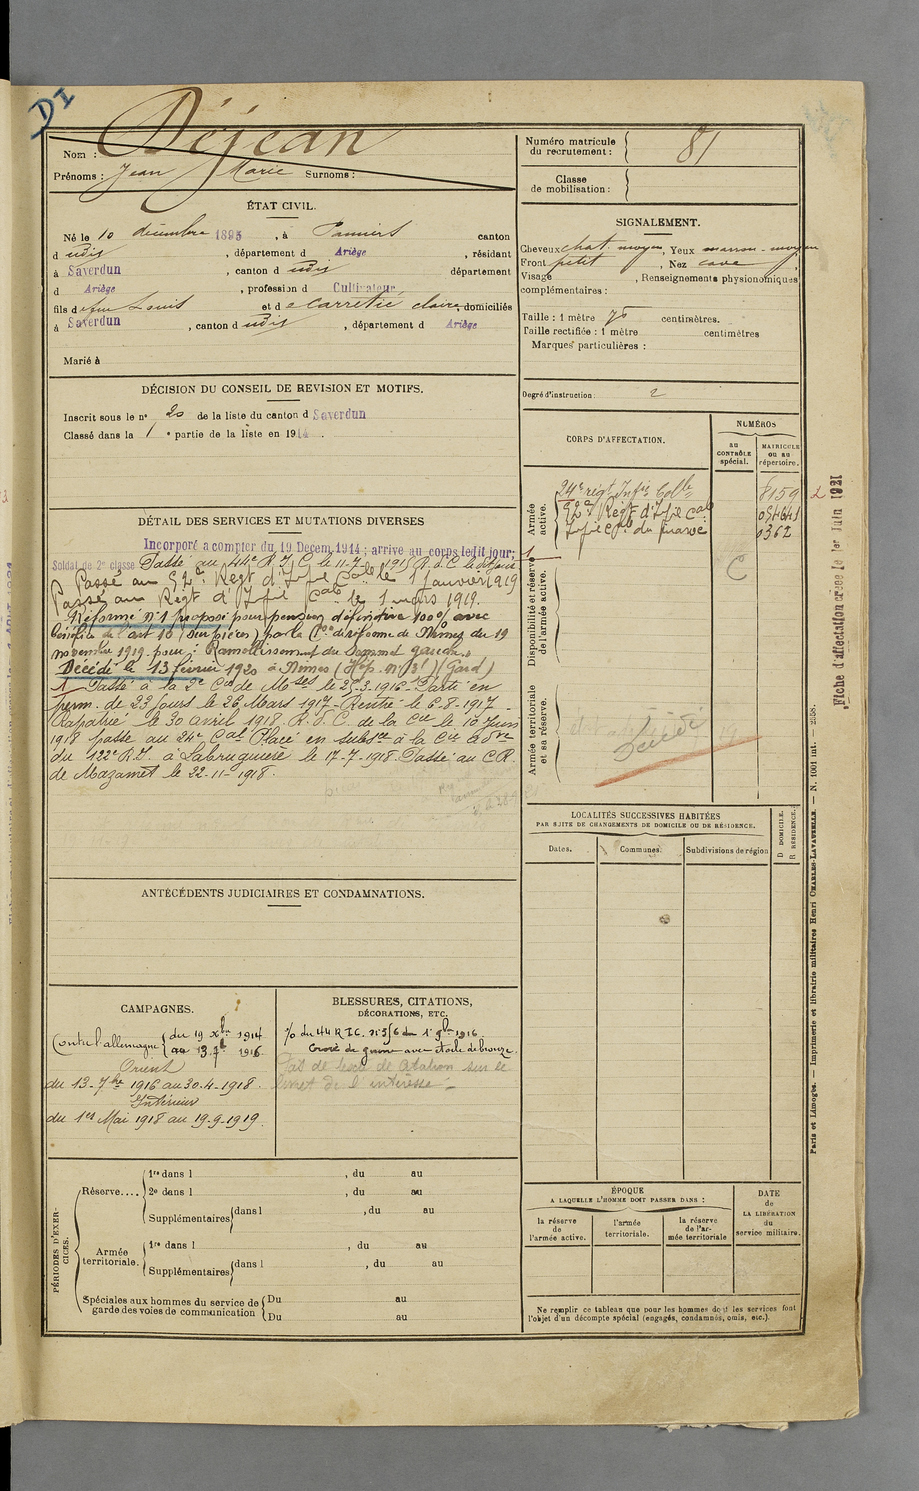 DI
Déjean
Nom :
Prénoms : Jean Marie Surnoms :
Numéro matricule du recrutement : 81
Classe de mobilisation :
ÉTAT CIVIL.
Né le 10 décembre 1895, à Pamiers canton
d udis, département d Ariège, résidant
à Saverdun, canton d udis département
d Ariège, profession d Cultivateur
fils d feu Louis et d e Carretié Claire, domiciliés
à Saverdun, canton d udis, département d Ariège
Marié à
SIGNALEMENT.
Cheveux chat. moyen, Yeux marron-moyen
Front petit, Nez cave
Visage , Renseignements physionomiques
complémentaires :
Taille : 1 mètre 70 centimètres.
Taille rectifiée : 1 mètre centimètres
Marques particulières :
Degré d'instruction : 2
DÉCISION DU CONSEIL DE REVISION ET MOTIFS.
Inscrit sous le n° 20 de la liste du canton d Saverdun
Classé dans la 1e partie de la liste en 1914.
DÉTAIL DES SERVICES ET MUTATIONS DIVERSES
Incorporé a compter du 19 Decem. 1914; arrivé au corps ledit jour;
Soldat de 2e classe Passé au 44e R.I.C. le 11-7-1915 R.d.C. le dit jour
Passé au 52e Regt d'Infie Cale le 1 Janvier 1919
Passé au Regt d'Infie Cale le 1 mars 1919.
Réformé n°1 proposé pour pension définitive 100% avec
bénéfice de l'art 10 par la Con de réforme de Nîmes du 19
novembre 1919. pour : Ramollissement du sommet gauche.
Décédé le 13 février 1920 à Nîmes (Gard)
1 Passé à la 2e Cie de Mses le 25-3-1916. Parti en
perm. de 23 jours le 26 Mars 1917 - Rentré le 6-8-1917
Rapatrié le 30 avril 1918. R.d.C. de la Cie le 10 Juin
1918 passé au 24e Cal Placé en subsce à la Cie
du 122e R.I. à Labruguière le 17-7-1918. Passé au C.R.
de Mazamet le 22-11-1918.
CORPS D'AFFECTATION.
NUMÉROS
au CONTRÔLE spécial.
MATRICULE ou au répertoire.
Armée active.
24e régt Infie Colle 8159
52e Régt d'Infie Cale
Infie Cale du Maroc 0362
1
Disponibilité et réserve de l'armée active.
C
Armée territoriale et sa réserve.
Décédé
LOCALITÉS SUCCESSIVES HABITÉES
PAR SUITE DE CHANGEMENTS DE DOMICILE OU DE RÉSIDENCE.
Dates.
Communes.
Subdivisions de région
D DOMICILE.
R RÉSIDENCE.
ANTÉCÉDENTS JUDICIAIRES ET CONDAMNATIONS.
CAMPAGNES.
Contre l'allemagne du 19 Xbre 1914
au 13 7bre 1916
Orient
du 13-7bre 1916 au 30-4-1918.
Intérieur
du 1er Mai 1918 au 19-9-1919.
BLESSURES, CITATIONS, DÉCORATIONS, ETC.
Croix de guerre avec étoile de bronze.
Pas de texte de citation sur le
livret de l'intéressé -
PÉRIODES D'EXERCICES.
Réserve....
1re dans l , du au
2e dans l , du au
Supplémentaires dans l , du au
Armée territoriale.
1re dans l , du au
Supplémentaires dans l , du au
Spéciales aux hommes du service de garde des voies de communication
Du au
Du au
ÉPOQUE
A LAQUELLE L'HOMME DOIT PASSER DANS :
la réserve de l'armée active.
l'armée territoriale.
la réserve de l'armée territoriale
DATE de LA LIBÉRATION du service militaire.
Ne remplir ce tableau que pour les hommes dont les services font
l'objet d'un décompte spécial (engagés, condamnés, omis, etc.).
Paris et Limoges. — Imprimerie et librairie militaires Henri CHARLES-LAVAUZELLE. — N. 1001 int. — 2558.
Fiche d'affectation créée le 1er Juin 1921
2